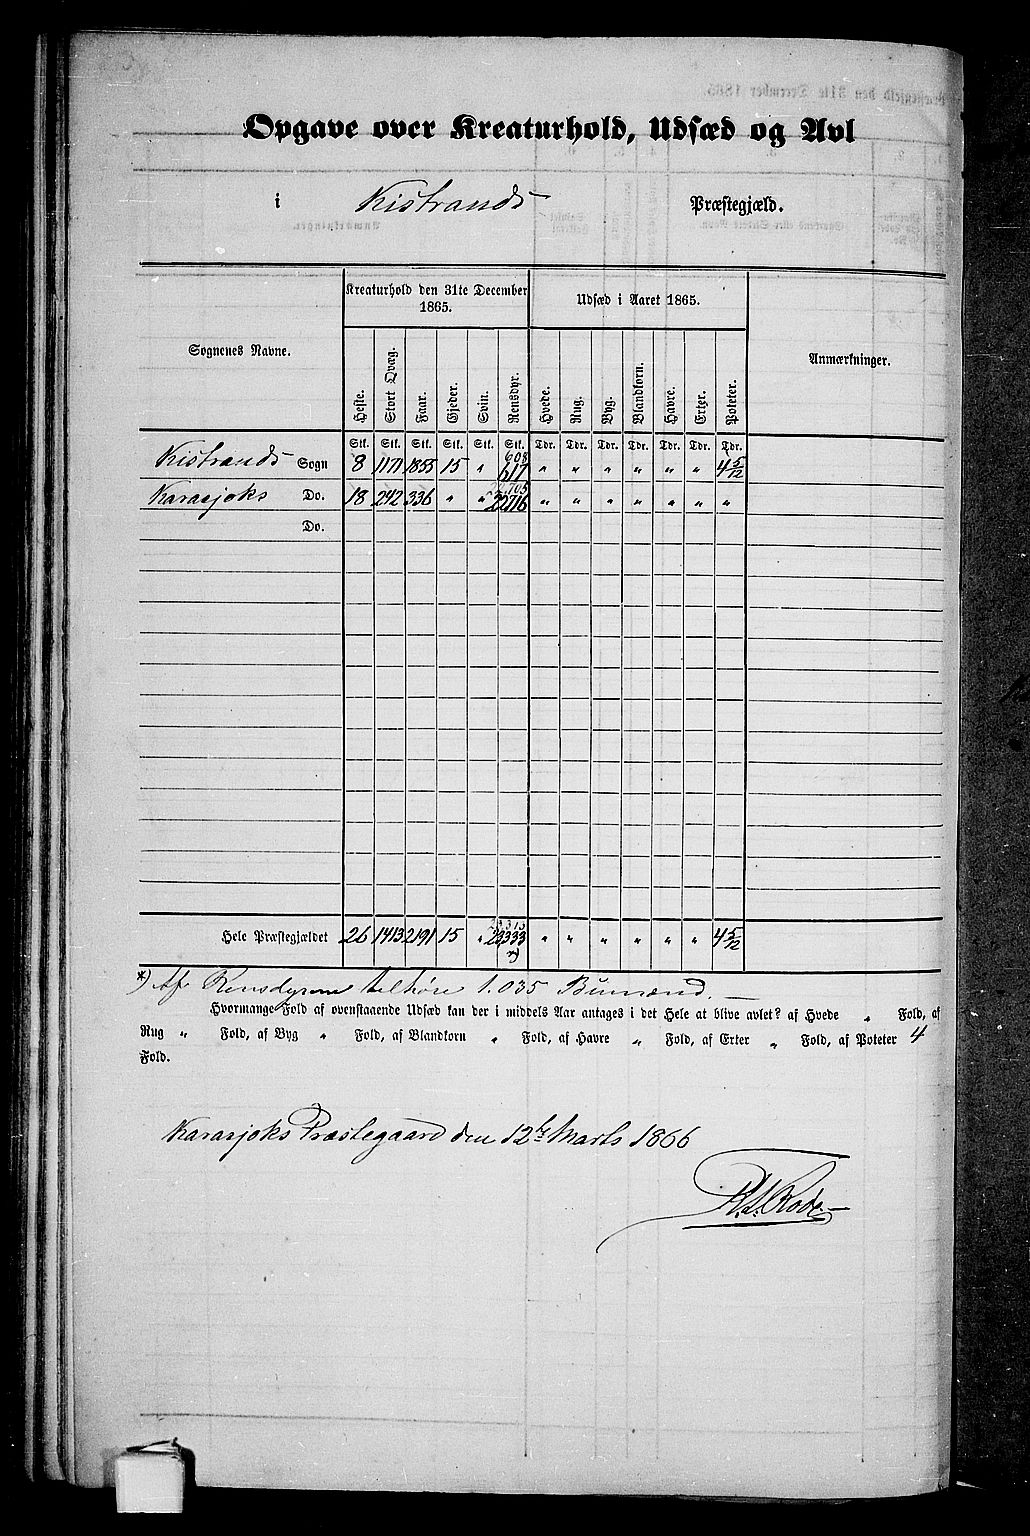 Opgave over Kreaturhold, Udsæd og Avl
i Kistrands Præstegjæld.
Sognenes Navne. Kreaturhold den 31te December 1865. Udsæd i Aaret 1865. Anmærkninger.
Heste. Stort Qvæg. Faar. Gjeder. Svin. Rensdyr. Hvede. Rug. Byg. Blandkorn. Havre. Erter. Poteter.
Stk. Stk. Stk. Stk. Stk. Stk. Tdr. Tdr. Tdr. Tdr. Tdr. Tdr. Tdr.
608
Kistrands Sogn 8 1171 1855 15 „ 617 „ „ „ „ „ „ 4 5/12
22,705
Karasjoks Do. 18 242 336 „ „ 22716 „ „ „ „ „ „ „
Do.
23,313
Hele Præstegjældet 26 1413 2191 15 „ 23333 „ „ „ „ „ „ 4 5/12
*)
*) Af Rensdyrene tilhøre 1.035 Bumænd. —
Hvormange Fold af ovenstaaende Udsæd kan der i middels Aar antages i det Hele at blive avlet? af Hvede „ Fold, af
Rug „ Fold, af Byg „ Fold, af Blandkorn „ Fold, af Havre „ Fold, af Erter „ Fold, af Poteter 4
Fold.
Karasjoks Præstegaard den 12te Marts 1866
Rode